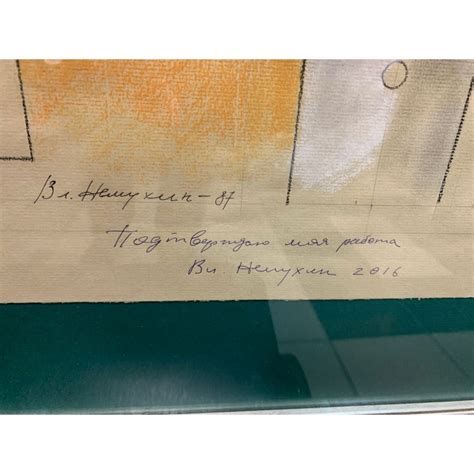 Вл. Немухин-87
Подтверждаю моя работа
Вл Немухин 2016